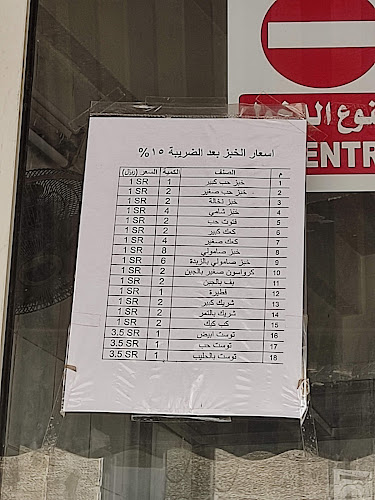 ممنوع الدخول
ENTR
أسعار الخبز بعد الضريبة ١٥%
م الصنف الكمية السعر (ريال)
1 خبز حب كبير 1 1 SR
2 خبز حب صغير 2 1 SR
3 خبز نخالة 2 1 SR
4 خبز شامي 4 1 SR
5 فتوت حب 2 1 SR
6 كعك كبير 2 1 SR
7 كعك صغير 4 1 SR
8 خبز صامولي 8 1 SR
9 خبز صامولي بالزبدة 6 1 SR
10 كرواسون صغير بالجبن 2 1 SR
11 بف بالجبن 2 1 SR
12 فطيرة 1 1 SR
13 شريك كبير 2 1 SR
14 شريك بالتمر 2 1 SR
15 كب كيك 2 1 SR
16 توست ابيض 1 3.5 SR
17 توست حب 1 3.5 SR
18 توست بالحليب 1 3.5 SR